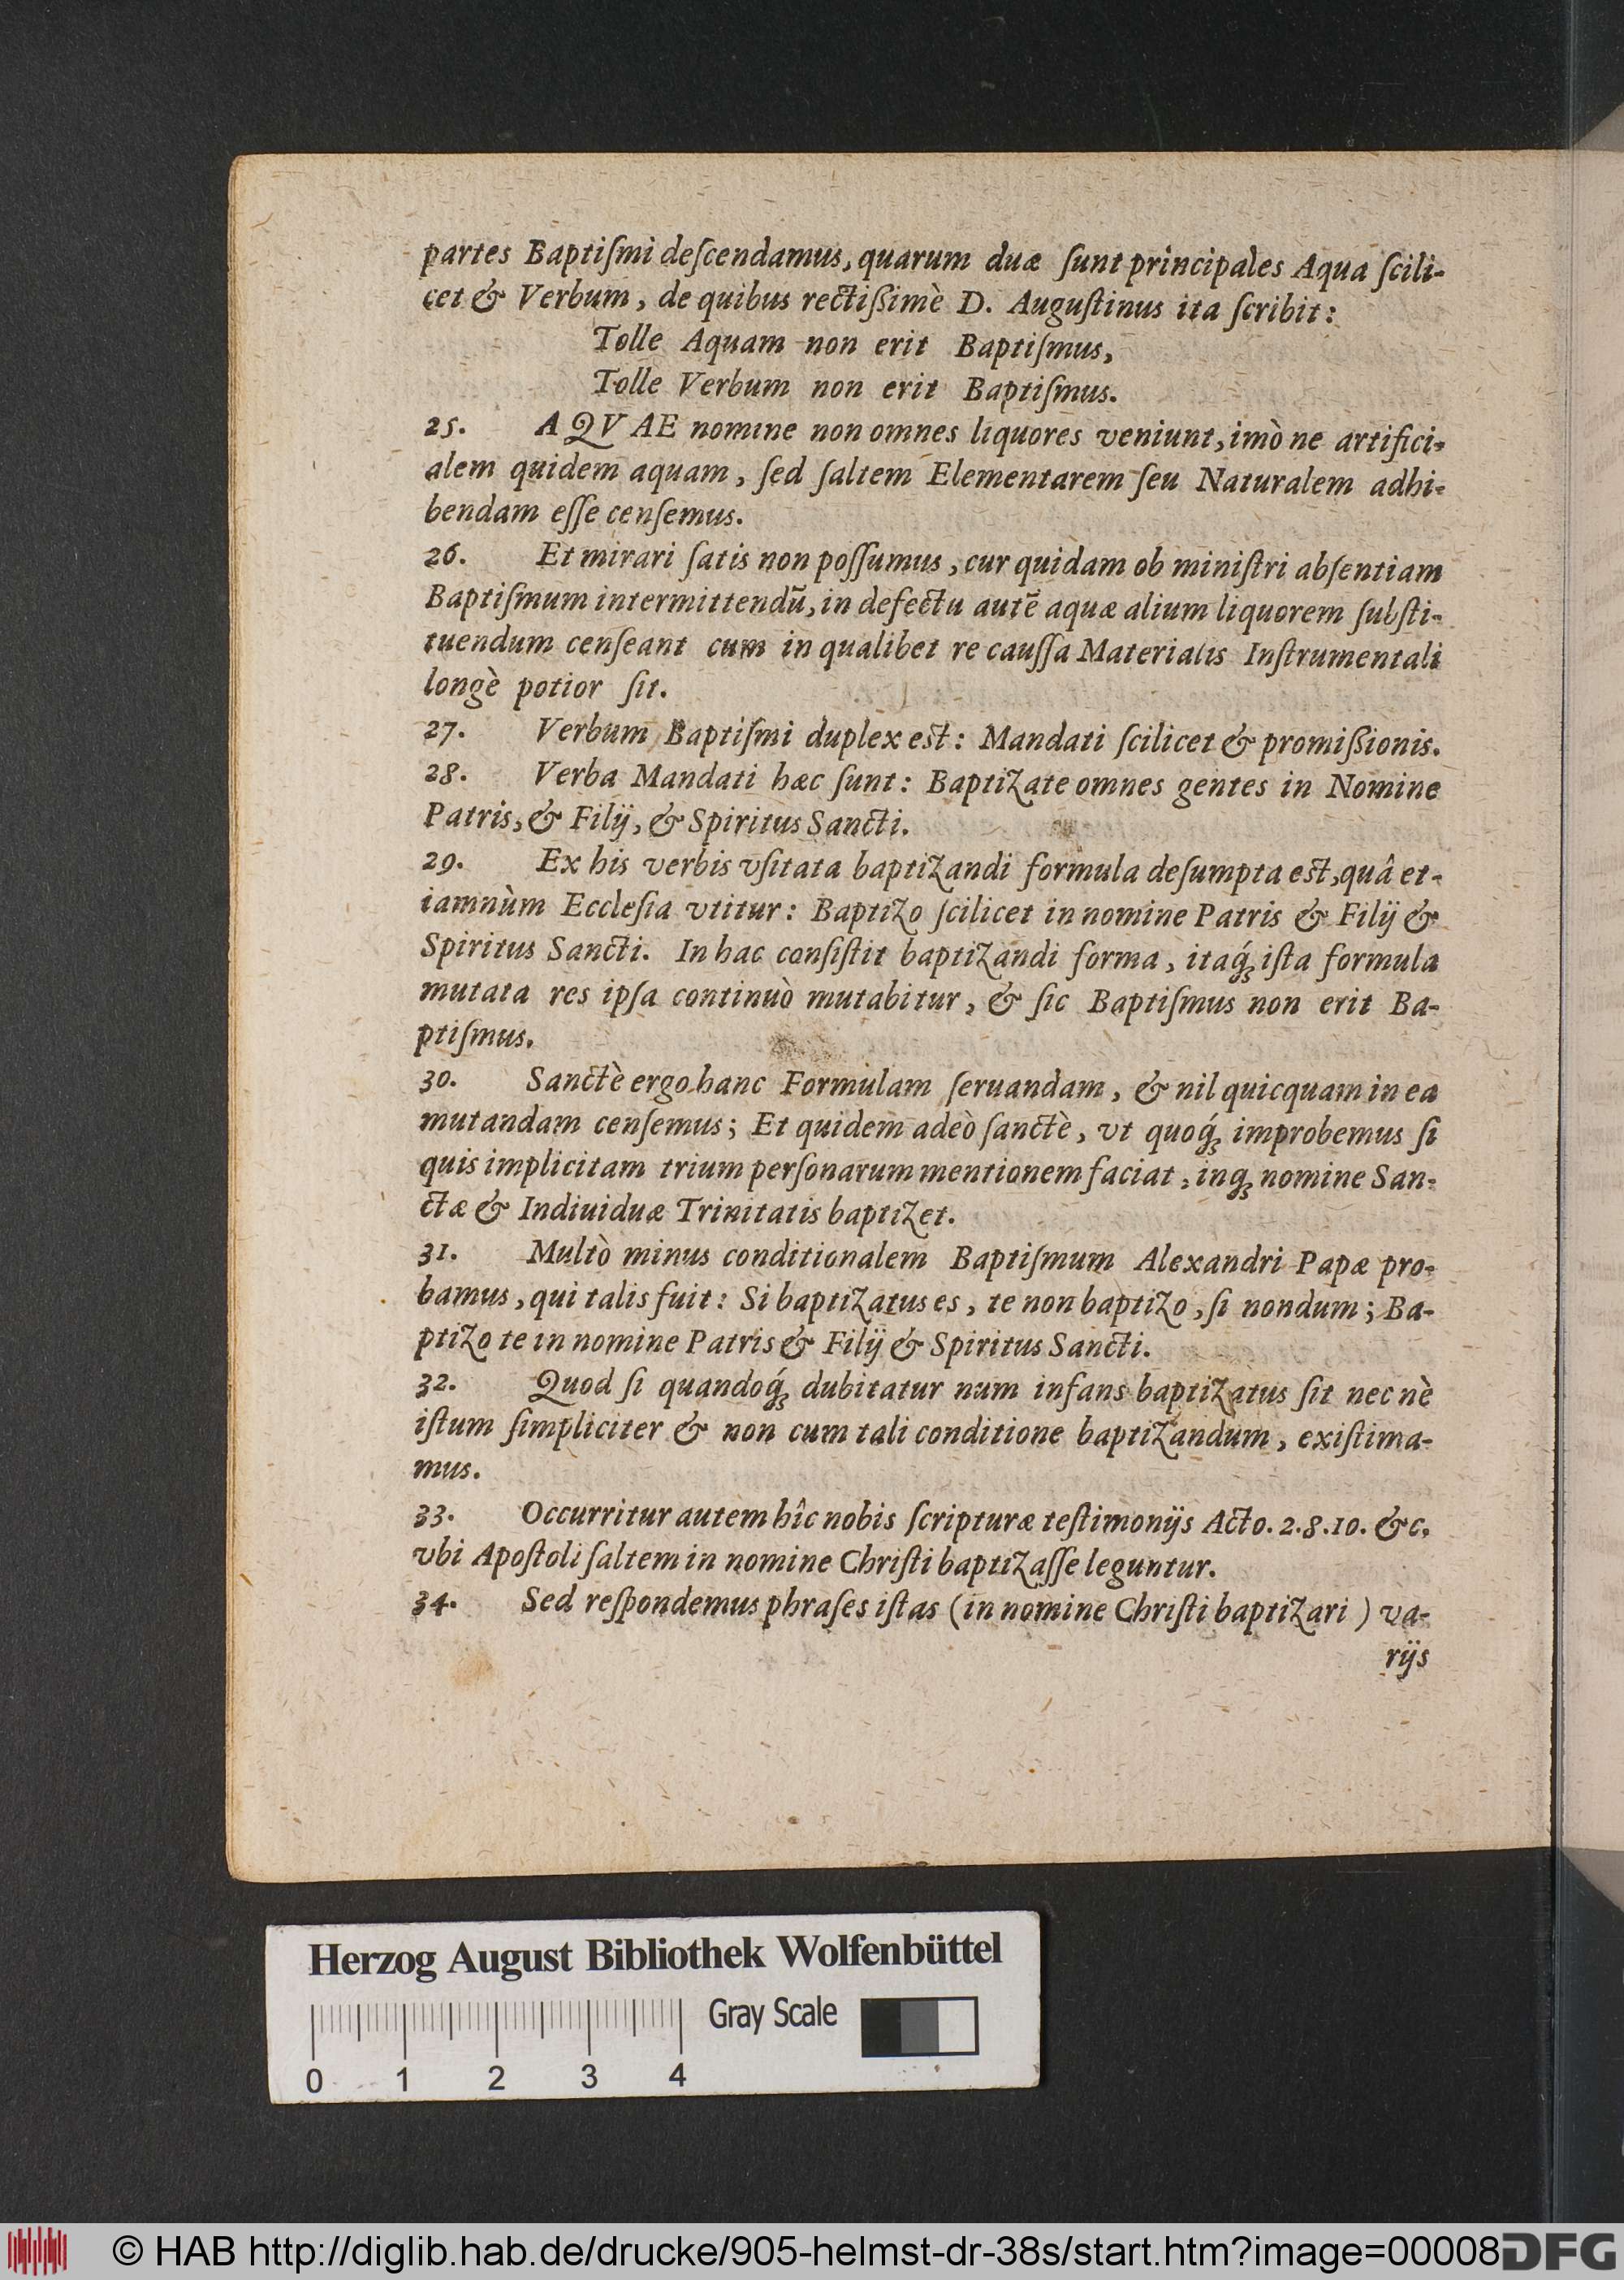 partes Baptiſmi deſcendamus, quarum duæ ſunt principales Aqua ſcili-
cet & Verbum, de quibus rectißimè D. Auguſtinus ita ſcribit:
Tolle Aquam non erit Baptiſmus,
Tolle Verbum non erit Baptiſmus.
25. AQVAE nomine non omnes liquores veniunt, imò ne artifici-
alem quidem aquam, ſed ſaltem Elementarem ſeu Naturalem adhi-
bendam eſſe cenſemus.
26. Et mirari ſatis non poſſumus, cur quidam ob miniſtri abſentiam
Baptiſmum intermittendũ, in defectu autẽ aquæ alium liquorem ſubſti-
tuendum cenſeant cum in qualibet re cauſſa Materialis Inſtrumentali
longè potior ſit.
27. Verbum Baptiſmi duplex est: Mandati ſcilicet & promißionis.
28. Verba Mandati hæc ſunt: Baptizate omnes gentes in Nomine
Patris, & Filij, & Spiritus Sancti.
29. Ex his verbis vſitata baptizandi formula deſumpta est, quâ et-
iamnùm Eccleſia vtitur: Baptizo ſcilicet in nomine Patris & Filij &
Spiritus Sancti. In hac conſiſtit baptizandi forma, itaq́ꝫ iſta formula
mutata res ipſa continuò mutabitur, & ſic Baptiſmus non erit Ba-
ptiſmus.
30. Sanctè ergo hanc Formulam ſeruandam, & nil quicquam in ea
mutandam cenſemus; Et quidem adeò ſanctè, vt quoq́ꝫ improbemus ſi
quis implicitam trium perſonarum mentionem faciat, inqꝫ nomine San-
ctæ & Indiuiduæ Trinitatis baptizet.
31. Multò minus conditionalem Baptiſmum Alexandri Papæ pro-
bamus, qui talis fuit: Si baptizatus es, te non baptizo, ſi nondum; Ba-
ptizo te in nomine Patris & Filij & Spiritus Sancti.
32. Quod ſi quandoq́ꝫ dubitatur num infans baptizatus ſit nec nè
iſtum ſimpliciter & non cum tali conditione baptizandum, exiſtima-
mus.
33. Occurritur autem hîc nobis ſcripturæ teſtimonijs Acto. 2.8.10. &c.
vbi Apoſtoli ſaltem in nomine Chriſti baptizaſſe leguntur.
34. Sed reſpondemus phraſes iſtas (in nomine Chriſti baptizari) va-
rijs
Herzog August Bibliothek Wolfenbüttel
Gray Scale
0 1 2 3 4
© HAB http://diglib.hab.de/drucke/905-helmst-dr-38s/start.htm?image=00008
DFG